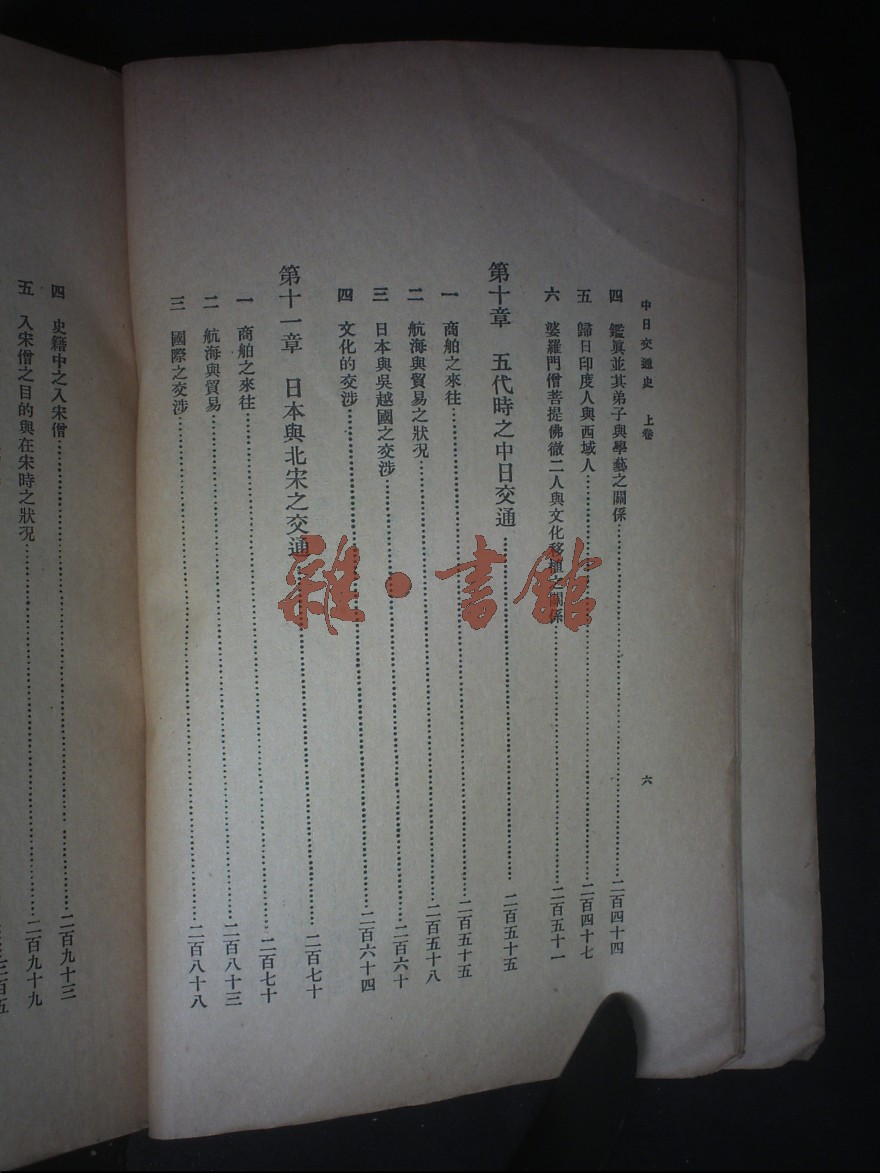 中日交通史 上卷 六
四 鑑眞並其弟子與學藝之關係……二百四十四
五 歸日印度人與西域人……二百四十七
六 婆羅門僧菩提佛徹二人與文化移植之關係……二百五十一
第十章 五代時之中日交通……二百五十五
一 商舶之來往……二百五十五
二 航海與貿易之狀況……二百五十八
三 日本與吳越國之交涉……二百六十
四 文化的交涉……二百六十四
第十一章 日本與北宋之交通……二百七十
一 商舶之來往……二百七十
二 航海與貿易……二百八十三
三 國際之交涉……二百八十八
四 史籍中之入宋僧……二百九十三
五 入宋僧之目的與在宋時之狀況……二百九十九
雜·書館